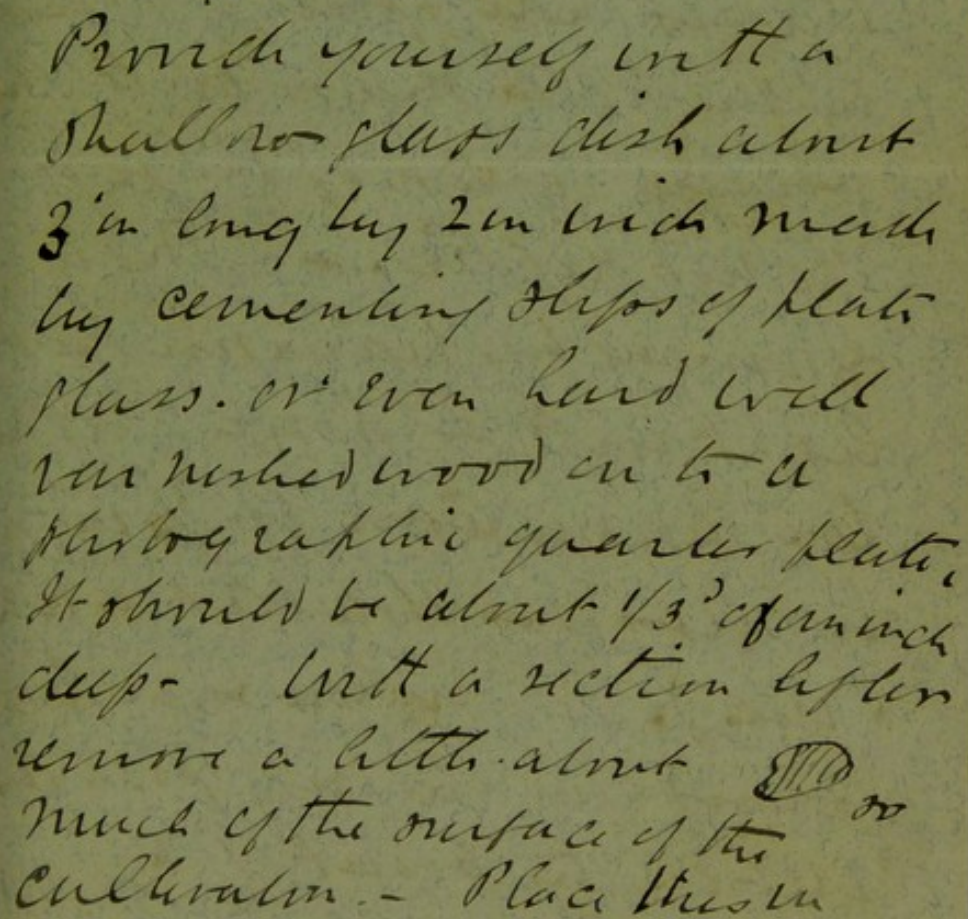 Provide yourself with a
shallow glass dish about
3 in long by 2 in wide made
by cementing slips of plate
glass. or even hard well
varnished wood on to a
photographic quarter plate,
It should be about 1/3 of an inch
deep- With a section lifter
remove a little. about
so
much of the surface of the
cultivation. - Place this in